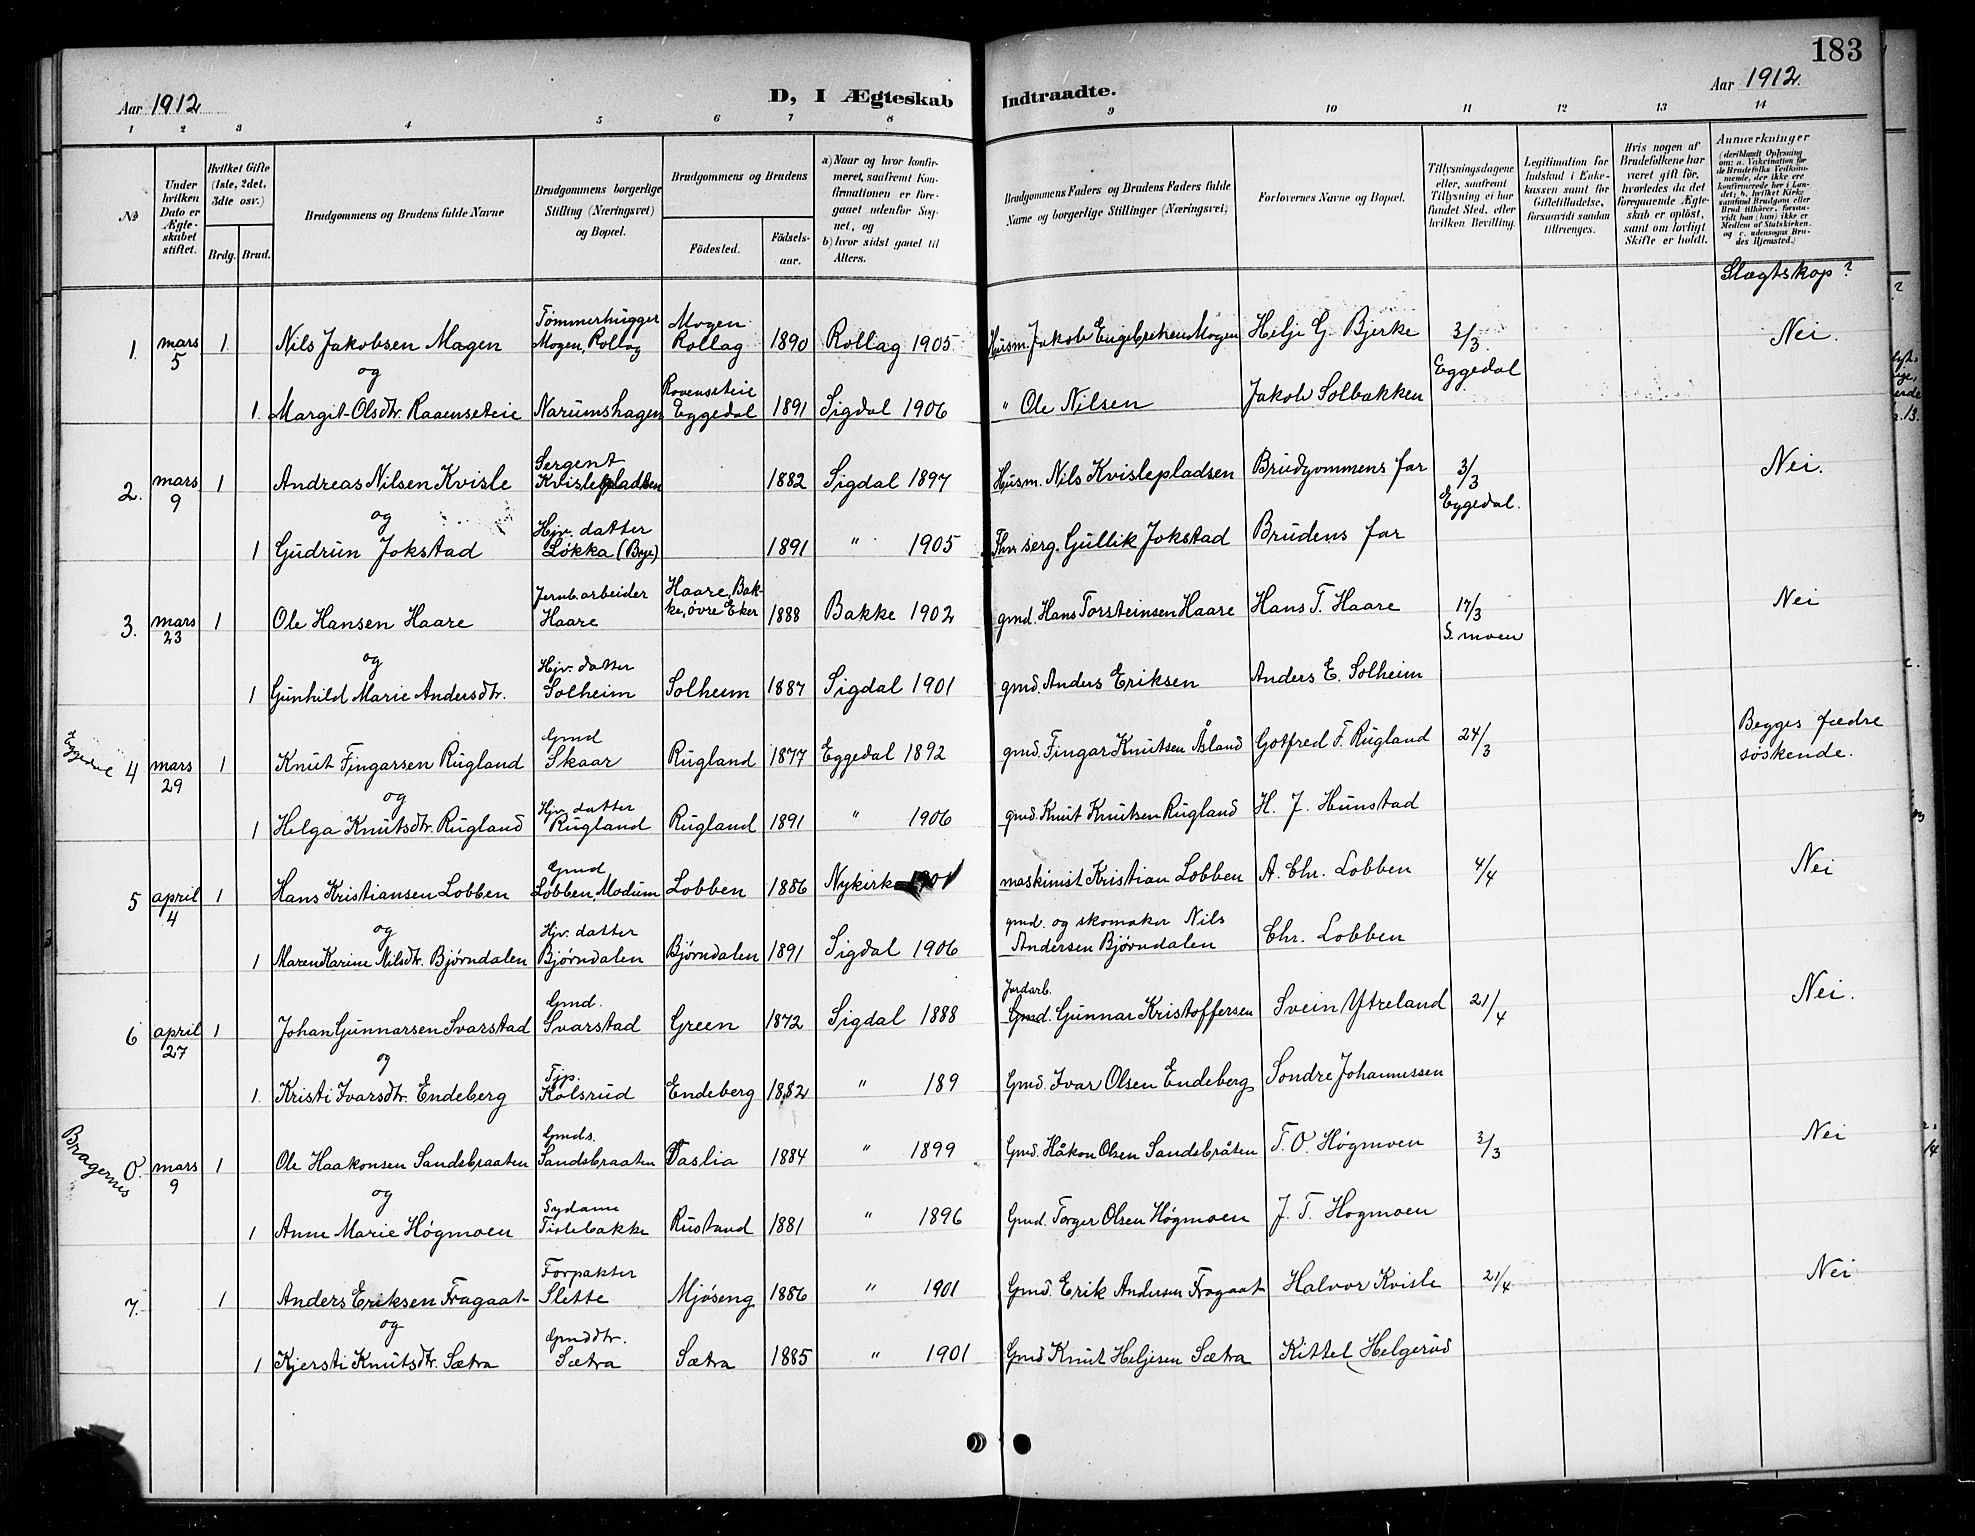 183
Aar 1912
D, I Ægteskab
Indtraadte.
Aar 1912.
1 2 3 4 5 6 7 8 9 10 11 12 13 14
No
Under hvilken Dato er Ægteskabet stiftet.
Hvilket Gifte (1ste, 2det, 3die osv.)
Brdg. Brud.
Brudgommens og Brudens fulde Navne
Brudgommens borgerlige Stilling (Næringsvei) og Bopæl.
Brudgommens og Brudens
Födested.
Födsels-aar.
a) Naar og hvor konfirmeret, saafremt Konfirmationen er foregaaet udenfor Sognet, og
b) hvor sidst gaaet til Alters.
Brudgommens Faders og Brudens Faders fulde Navne og borgerlige Stillinger (Næringsvei)
Forlovernes Navne og Bopæl.
Tillysningsdagene eller, saafremt Tillysning ei har fundet Sted, efter hvilken Bevilling.
Legitimation for Indskud i Enkekassen samt for Giftetilladelse, forsaavidt saadan tiltrænges.
Hvis nogen af Brudefolkene har været gift för, hvorledes da det foregaaende Ægteskab er oplöst, samt om lovligt Skifte er holdt.
Anmærkninger
(deriblandt Oplysning om: a. Vakcination for de Brudefolks Vedkommende, der ikke ere konfirmerede her i Landet; b. hvilket Kirkesamfund Brudgom eller Brud tilhörer, forsaavidt han (hun) ikke er Medlem af Statskirken, og c. udensogns Brudes Hjemsted.)
Slægtskap?
1. mars 5 1. Nils Jakobsen Mogen Tømmerhugger Mogen, Rollag Mogen Rollag 1890 Rollag 1905. Husm. Jakob Engebretsen Mogen Helje G. Bjerke 3/3. Eggedal Nei.
og
1. Margit Olsdtr. Raaenseteie Narumshagen Rovenseteie Eggedal 1891 Sigdal 1906 " Ole Nilsen Jakob Solbakken
2. mars 9 1 Andreas Nilsen Kvisle Sergent Kvislepladsen 1882 Sigdal 1897 Husm. Nils Kvislepladsen Brudgommens far 3/3 Eggedal. Nei.
og
1 Gudrun Jokstad Hjv. datter Løkka (Bye) 1891 " 1905 serg. Gullik Jokstad Brudens far
3. mars 23 1 Ole Hansen Haare Jernb. arbeider Haare Haare, Bakke, øvre Eker 1888 Bakke 1902 gmd. Hans Torsteinsen Haare Hans T. Haare 17/3 S. moen Nei
og
1 Gunhild Marie Andersdtr. Hjv. datter Solheim Solheim 1887 Sigdal 1901 gmd. Anders Eriksen Anders E. Solheim
Eggedal 4 mars 29 1 Knut Fingarsen Rugland Gmd Skaar Rugland 1877 Eggedal 1892 gmd. Fingar Knutsen Åsland Gotfred F. Rugland 24/3 Begges fædre søskende.
og
1 Helga Knutsdtr. Rugland Hjv. datter Rugland Rugland 1891 " 1906 gmd. Knut Knutsen Rugland H. J. Hunstad
5 april 4 1 Hans Kristiansen Lobben Gmd Lobben, Modum Lobben 1886 Nykirke 1901 maskinist Kristian Lobben A. Chr. Lobben 4/4 Nei
og
1 Maren Karine Nilsdtr. Bjørndalen Hjv. datter Bjørndalen Bjørndalen 1891 Sigdal 1906 gmd. og skomaker Nils Andersen Bjørndalen Chr. Lobben
6 april 27 1 Johan Gunnarsen Svarstad Gmd. Svarstad Green 1872 Sigdal 1888 Jordarb. Gmd. Gunnar Kristoffersen Svein Ytreland 21/4 Nei.
og
1. Kristi Ivarsdtr. Endeberg Tjp. Kolsrud Endeberg 1882 " 189 Gmd. Ivar Olsen Endeberg Sondre Johannessen
Bragernes 0. mars 9 1 Ole Haakonsen Sandsbraaten Gmds. Sandsbraaten Daslia 1884 " 1899 Gmd. Håkon Olsen Sandsbråten T. O. Høgmoen 3/3 Nei
og
1 Anne Marie Høgmoen Sydame Tislebakke Rustand 1881 " 1896 Gmd. Torger Olsen Høgmoen J. T. Hogmoen
7. 1 Anders Eriksen Fragaat Forpakter Slette Mjøseng 1886 " 1901 Gmd. Erik Andersen Fragaat Halvor Kvisle 21/4 Nei
og
1 Kjersti Knutsdtr. Sætra Gmddtr. Sætra Sætra 1885 " 1901 Gmd Knut Heljesen Sætra Kittel Helgerud